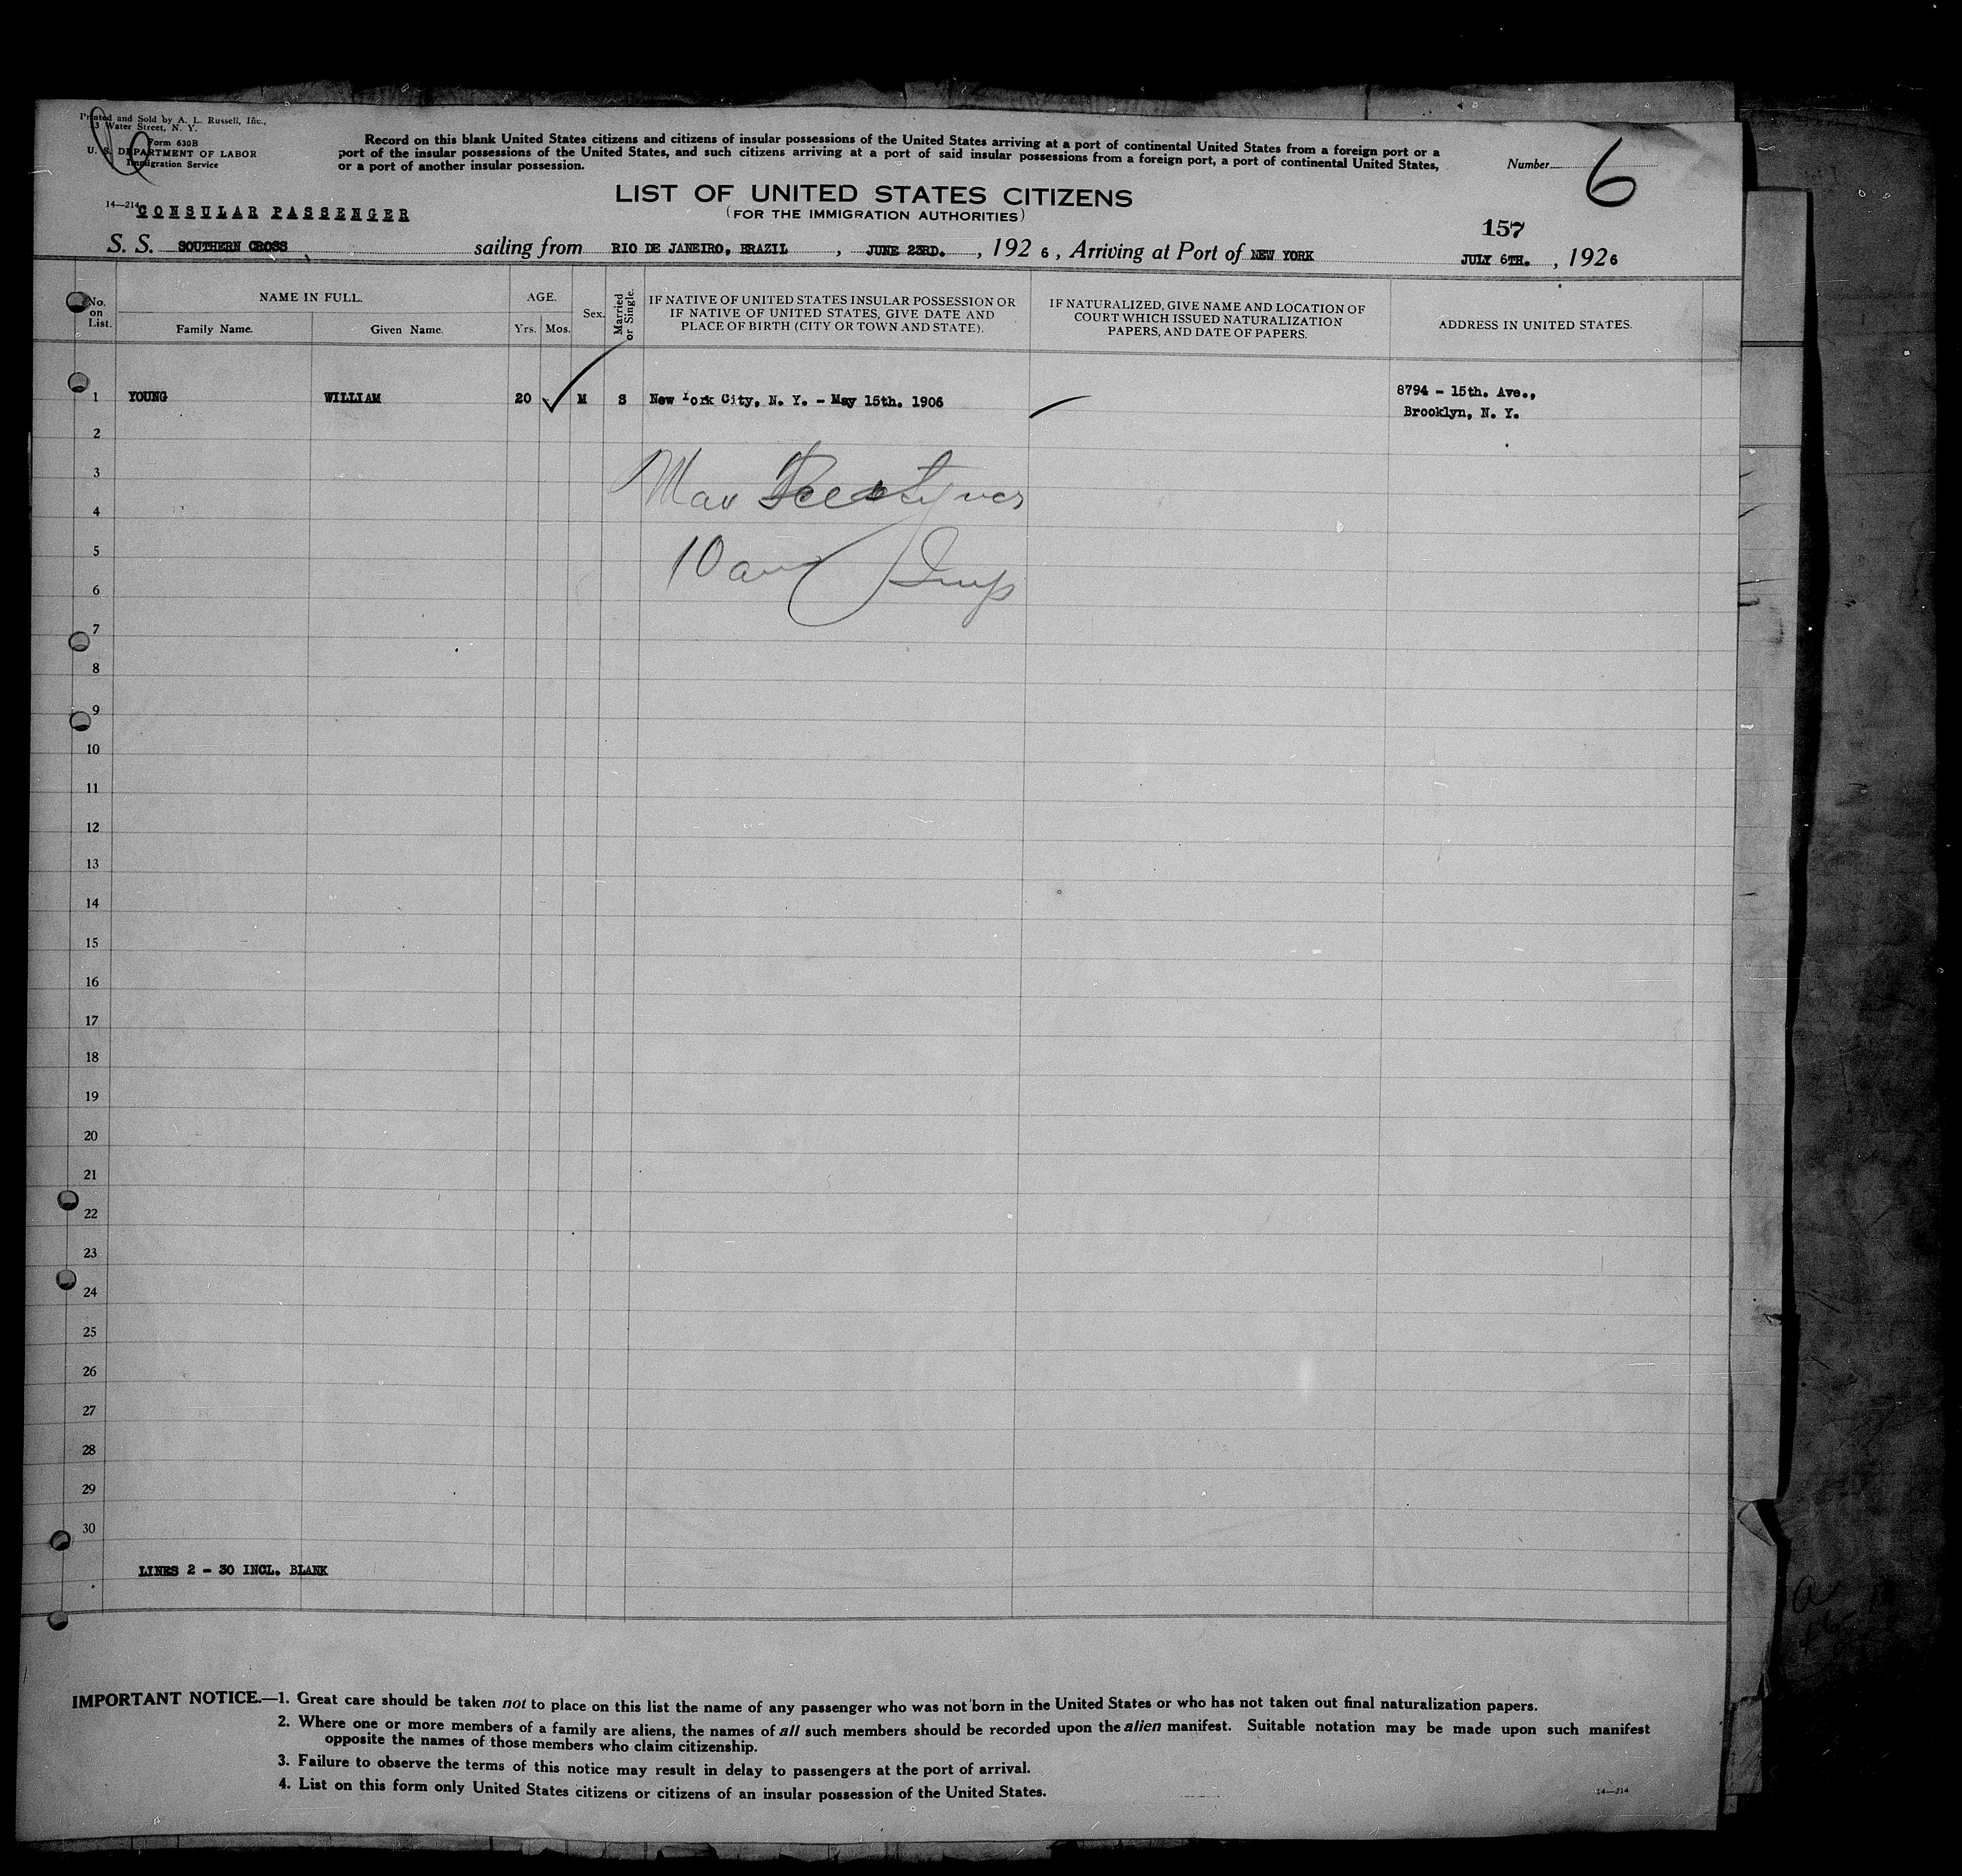 Printed and Sold by A. L. Russell, Inc.,
Water Street, N. Y.
Form 630B
U. S. DEPARTMENT OF LABOR
Immigration Service
Record on this blank United States citizens and citizens of insular possessions of the United States arriving at a port of continental United States from a foreign port or a
port of the insular possessions of the United States, and such citizens arriving at a port of said insular possessions from a foreign port, a port of continental United States,
or a port of another insular possession.
Number 6
LIST OF UNITED STATES CITIZENS
(FOR THE IMMIGRATION AUTHORITIES)
14—214
CONSULAR PASSENGER
157
S. S. SOUTHERN CROSS sailing from RIO DE JANEIRO, BRAZIL , JUNE 23RD. , 192 6 , Arriving at Port of NEW YORK JULY 6TH. , 1926
No. on List.
NAME IN FULL.
Family Name.
Given Name.
AGE.
Yrs. Mos.
Sex.
Married or Single.
IF NATIVE OF UNITED STATES INSULAR POSSESSION OR
IF NATIVE OF UNITED STATES, GIVE DATE AND
PLACE OF BIRTH (CITY OR TOWN AND STATE).
IF NATURALIZED, GIVE NAME AND LOCATION OF
COURT WHICH ISSUED NATURALIZATION
PAPERS, AND DATE OF PAPERS.
ADDRESS IN UNITED STATES.
1 YOUNG WILLIAM 20 M S New York City, N. Y. - May 15th. 1906 8794 - 15th. Ave.,
Brooklyn, N. Y.
2
3
4
5
10 am Insp
6
7
8
9
10
11
12
13
14
15
16
17
18
19
20
21
22
23
24
25
26
27
28
29
30
LINES 2 - 30 INCL. BLANK
IMPORTANT NOTICE.—1. Great care should be taken not to place on this list the name of any passenger who was not born in the United States or who has not taken out final naturalization papers.
2. Where one or more members of a family are aliens, the names of all such members should be recorded upon the alien manifest. Suitable notation may be made upon such manifest
opposite the names of those members who claim citizenship.
3. Failure to observe the terms of this notice may result in delay to passengers at the port of arrival.
4. List on this form only United States citizens or citizens of an insular possession of the United States.
14—214